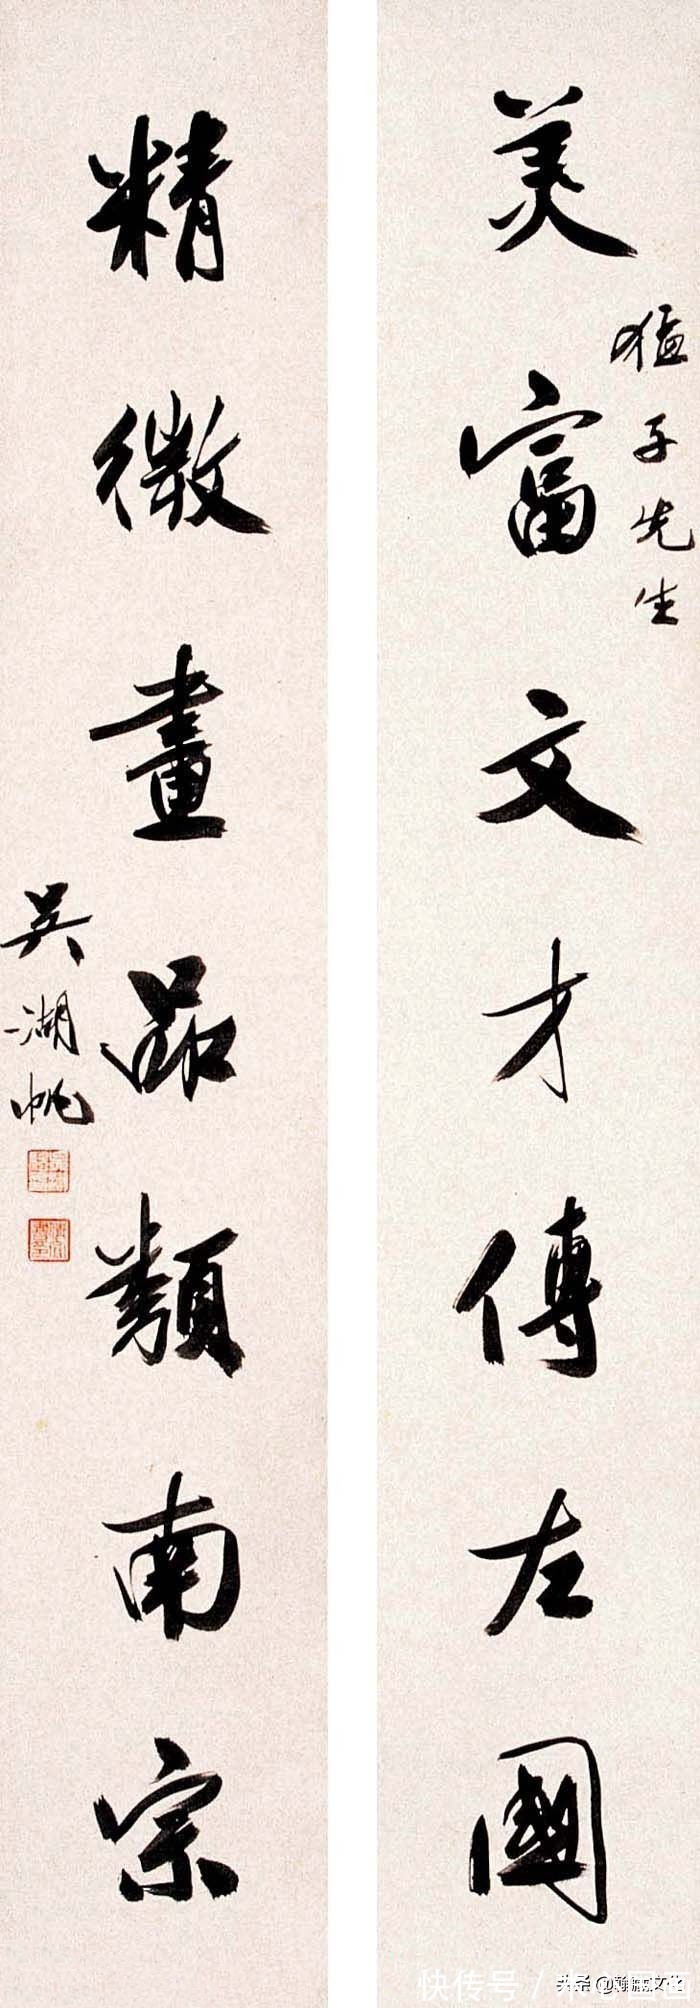 美富文才傳左國
猛子先生
精微畫品類南宗
吳湖帆
快传号
头条 @瀚